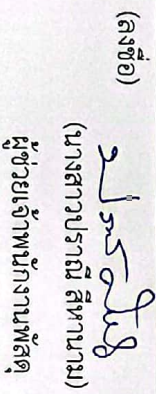 (ลงชื่อ)
(นางสาวปราณี สีหานาม)
ผู้ช่วยเจ้าพนักงานพัสดุ